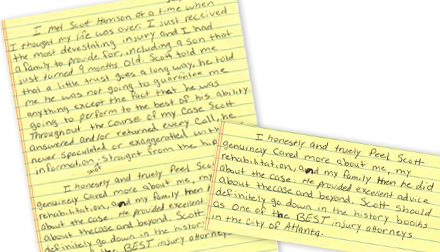 I met Scott Harrison at a time when
I thought my life was over. I just received
the most devastating injury and I had
a family to provide for, including a son that
just turned 9 months old. Scott told me
that a little trust goes a long way, he told
me he was not going to guarantee me
anything except the fact that he was
going to perform to the best of his ability.
Throughout the course of my case Scott
answered and/or returned every call, he
never speculated or exaggerated with
information, straight from the hip
I honestly and truely feel Sco
genuinely cared more about me, my
rehabilitation, and my family then
about the case. He provided excellent
about the case and beyond. Scott
definitely go down in the histor
as One of the BEST injury attorneys
I honestly and truely feel Scott
genuinely cared more about me, my
rehabilitation, and my family then he did
about the case. He provided excellent advice
about the case and beyond. Scott should
definitely go down in the history books
as One of the BEST injury attorneys
in the city of Atlanta.